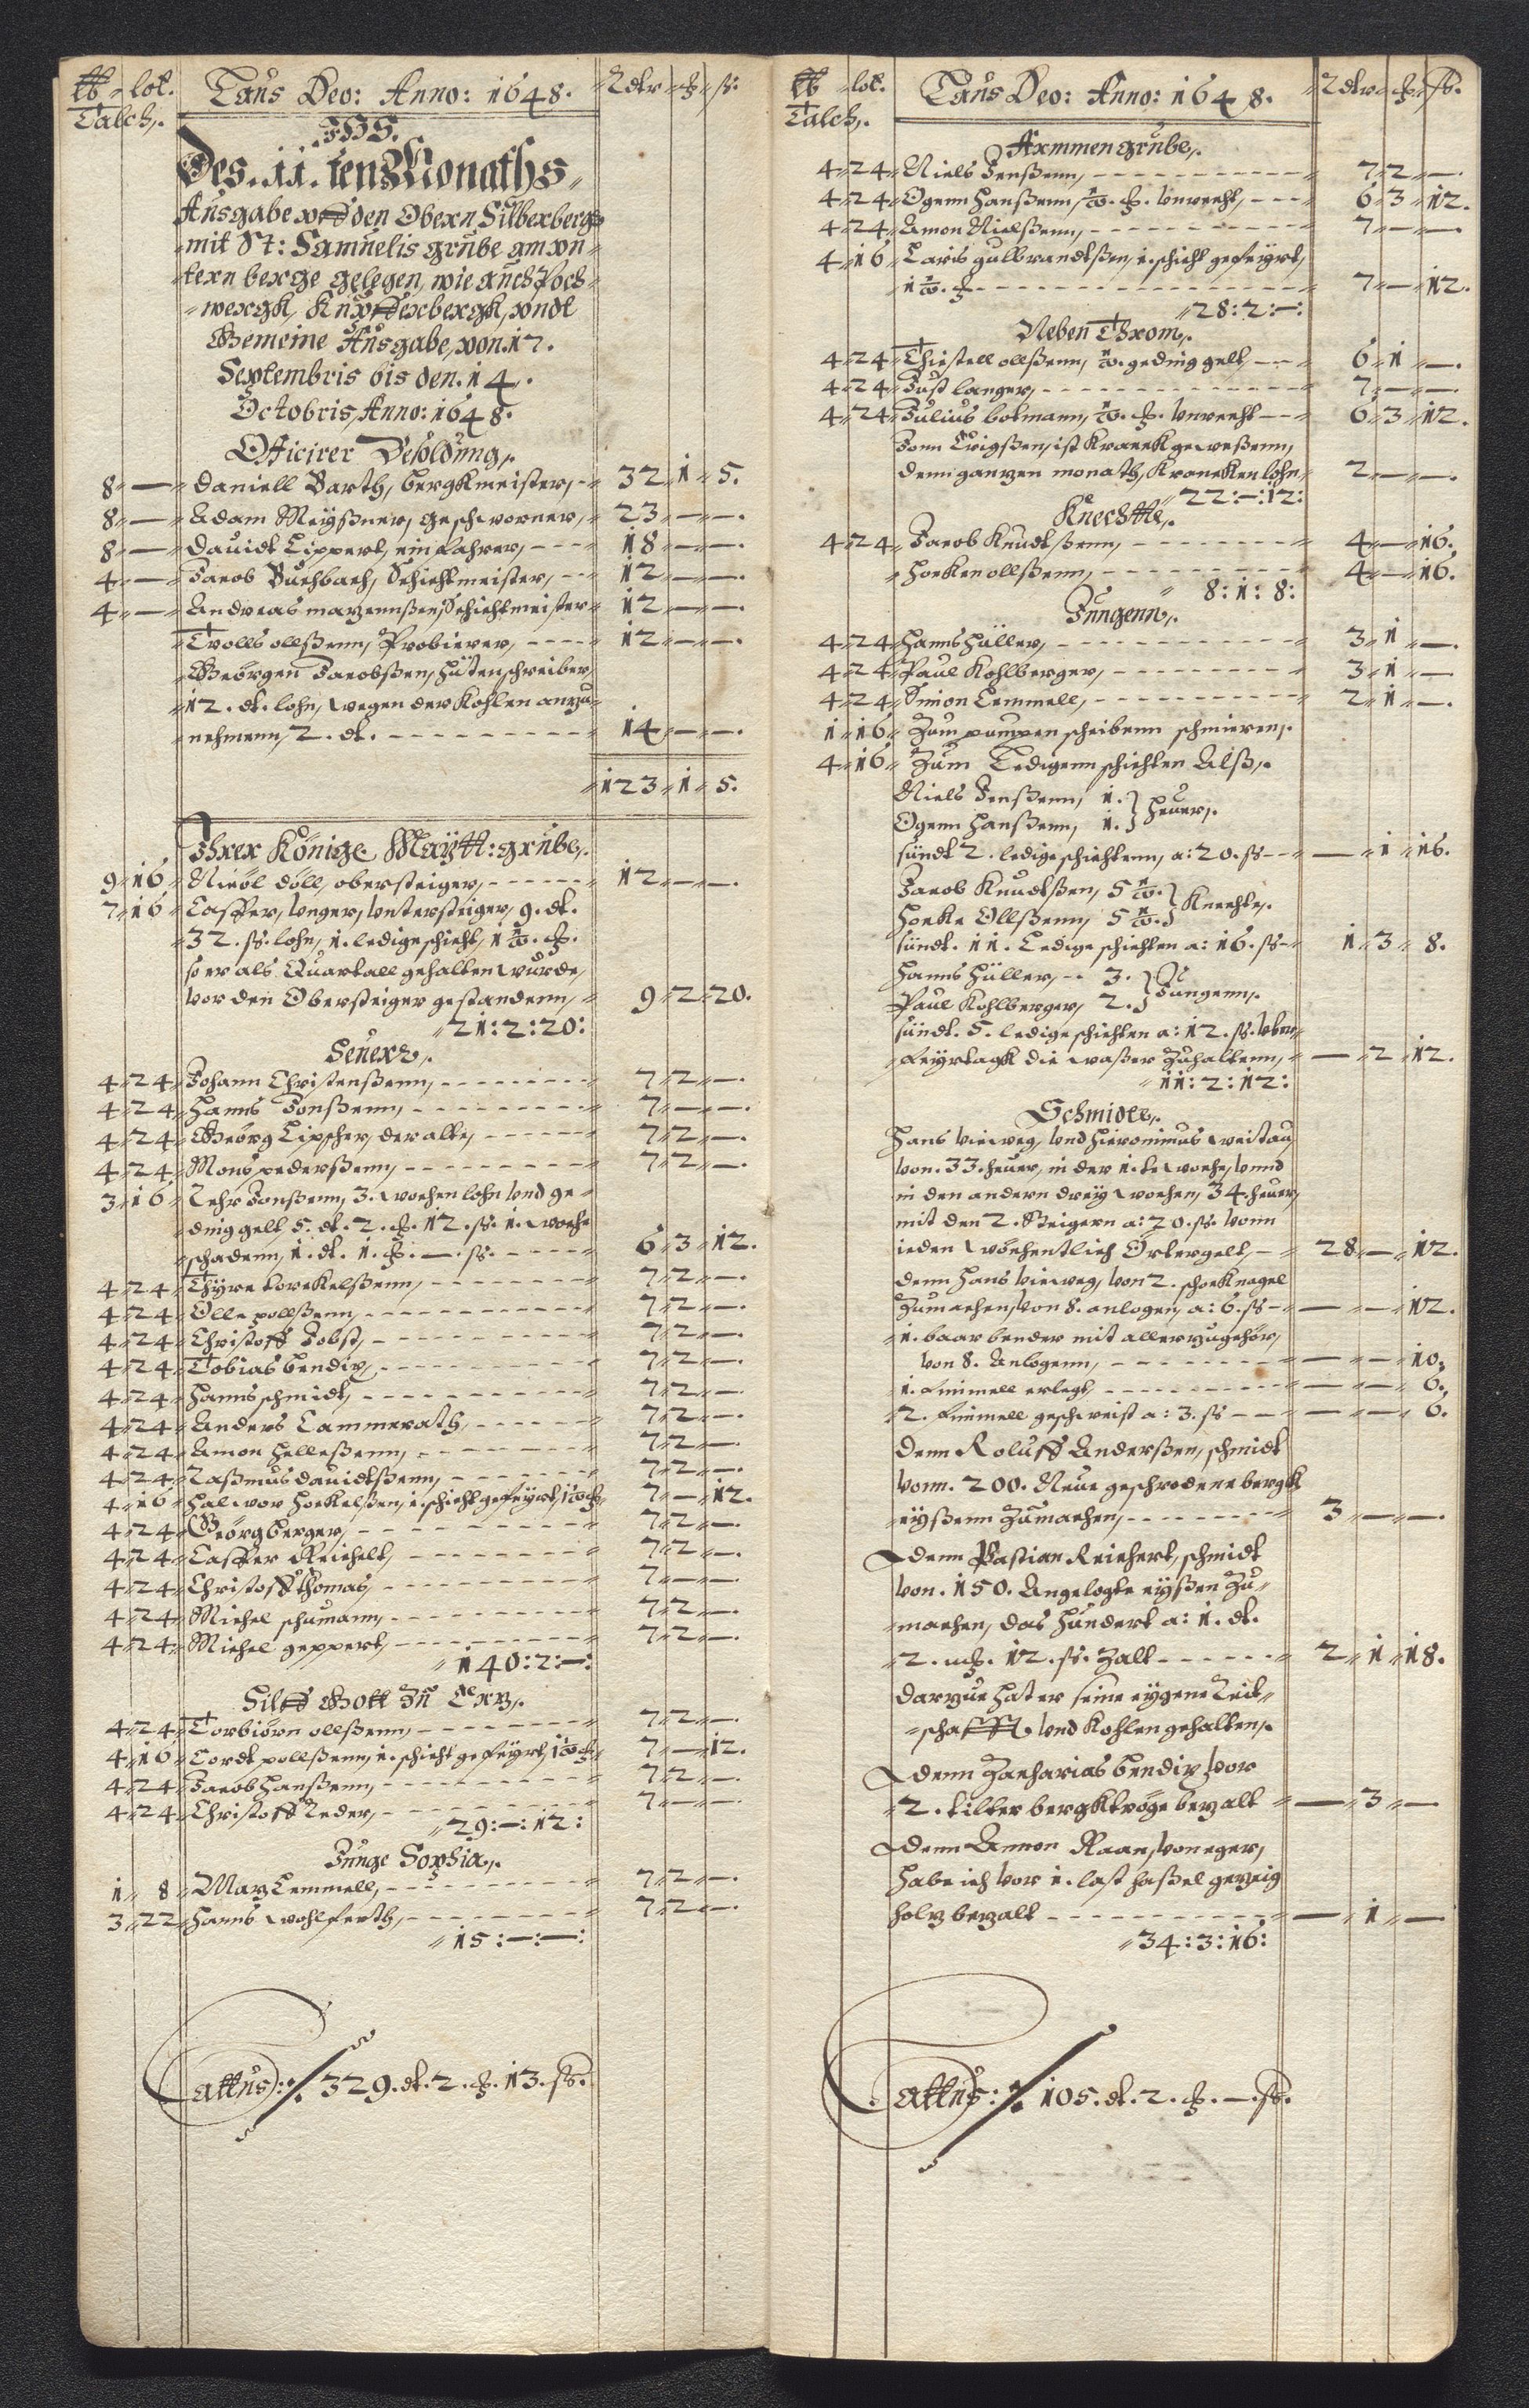 ℔ lot. Laus Deo: Anno: 1648. Rdtr ꝶ ß.
Talch.
JHS.
Des 11. ten Monaths
Ausgabe vff den Obern Silberberg
mit St: Samuelis grube am vn-
tern berge gelegen, wie auch Poch-
wergk, Knapffenbergk, vndt
Gemeine Ausgabe, von. 17.
Septembris bis den. 14.
Octobris, Anno: 1648.
Officirer Besoldung.
8 — Daniell Barth, bergkmeister, 32 1 5.
8 — Adam Meyßner, geschworner, 23 — —.
8 — Dauidt Lippert, ein fahrer, 18 — —.
4 — Jacob Buchbach, Schichtmeister, 12 — —.
4 — Andreas Mazennßen, Schichtmeister 12 — —.
Trolls ollßenn, Probierer, 12 — —.
Geörgen Jacobßen, hüttenschreiber
12. dt. lohn, wegen der Kohlen anzu-
nehmenn, 2. dt. 14 — —.
123 1 5.
Ihrer Könige. Maytt: grube.
9 16 Nicol döll, obersteiger, 12 — —.
7 16 Casper, Unger, Untersteiger, 9. dt.
32. ß. lohn, 1. ledige schicht, 1
so er als Quartall gehalten wurde,
vor den Obersteiger gestandenn, 9 2 20.
21: 2: 20:
Heuere.
4 24 Johann Christenßenn, 7 2 —.
4 24 Hanns Jonßenn, 7 — —.
4 24 Geörg Lipscher, der alte, 7 2 —.
4 24 Mons pederßenn, 7 2 —.
3 16 Lehr Jonßenn, 3. wochen lohn vnd ge-
ding gelt 5. dt. 2. ꝶ. 12. ß. 1. woche
schadenn, 1. dt. 1. ꝶ. —. ß. 6 3 12.
4 24 Thÿre torckelßenn, 7 2 —.
4 24 Olle pollßenn, 7 2 —.
4 24 Christoff Jobst, 7 2 —.
4 24 Tobias bendix, 7 2 —.
4 24 Hanns schmidt, 7 2 —.
4 24 Anders Cammerath, 7 2 —.
4 24 Amon helleßenn, 7 2 —.
4 24 Raßmus dauidtßenn, 7 2 —.
4 16 Halwor hockelßen, 1. schicht gefeyrt, 7 — 12.
4 24 Geörg berger, 7 2 —.
4 24 Casper Reichelt, 7 2 —.
4 24 Christoff thomas, 7 — —.
4 24 Michel schumann, 7 2 —.
4 24 Michel geppert, 7 2 —.
140: 2: —:
Hilff Gott Zu Ertz.
4 24 Torbiörn ollßenn, 7 2 —.
4 16 Cordt pollßenn, 1. schicht gefeyrt, 7 — 12.
4 24 Jacob Hanßenn, 7 2 —.
4 24 Christoff Leder, 7 — —.
29: —: 12:
Junge Sophia.
1 8 Marz Lemmell, 7 2 —.
3 22 Hanns wohlferth, 7 2 —.
15: —: —:
Lattus: 329. dt. 2. ꝶ. 13. ß.
℔ lot. Laus Deo: Anno: 1648. Rdtr ꝶ ß.
Talch.
Armmen grube.
4 24 Niels Jenßenn, 7 2 —.
4 24 Ogenn Hanßenn, Vnrecht, 6 3 12.
4 24 Amon Nielßenn, 7 — —.
4 16 Laris gulbrandtßen, 1. schicht gefeyrt,
1 7 — 12.
28: 2: —:
Neben Throm.
4 24 Thistell ollßenn, geding gelt 6 1 —.
4 24 Just langer, 7 — —.
4 24 Julius botmann, Vnrecht 6 3 12.
Jonn Erigßen, ist Kranck geweßenn,
denn ganzen monath, Krancken lohn 2 — —.
22: —: 12:
Knechtte.
4 24 Jacob Knudtßenn, 4 — 16.
Hocken ollßenn, 4 — 16.
8: 1: 8:
Jungenn.
4 24 Hanns Hüller, 3 1 —.
4 24 Paul Kohlberger, 3 1 —
4 24 Simon Lemmell, 2 1 —.
1 16 Zum pumpen scheibenn schmieren.
4 16 Zum Ledigenn schichten Alß.
Niels Jenßenn, 1. } heuer.
Ogenn Hanßenn, 1.
sündt 2. ledige schichtenn, a: 20. ß — 1 16.
Jacob Knudtßen, 5 } Knechte.
Hocke Ollßenn, 5
sündt. 11. Ledige schichten a: 16. ß 1 3 8.
Hanns Hüller, 3. } Jungenn.
Paul Kohlberger, 2.
sündt. 5. ledige schichten a: 12. ß. Vber
feyrtagk die waßer Zuhaltenn, — 2 12.
11: 2: 12:
Schmidte.
Hans Vieweg, Vnd Hieronimus weistau,
von. 33. heuer, in der 1. te woche, Vnnd
in den andern dreÿ wochen, 34. heuer,
mit den 2. Steigern a: 20. ß. Vonn
ieden wöchentlich Örtergelt, 28 — 12.
denn Hans Vieweg, von 2. schock nagel
Zumachen, von 8. anlogen, a: 6. ß — — 12.
1. baar bender mit aller zugehör,
von 8. Anlogenn, — — 10.
1. fimmell erlegt, — — 6.
2. fimmell geschweist a: 3. ß — — 6.
denn Roluff Anderßen, schmidt
vonn. 200. Neue geschrodene bergk
eyßenn Zumachen, 3 — —.
denn Bastian Reichert, schmidt
von. 150. Angelogte eyßen Zu-
machen, das Hundert a: 1. dt.
2. ꝶ. 12. ß. Zalt 2 1 18.
darzue hat er seine eygene Leit-
schafft Vnd Kohlen gehalten.
denn Zacharias bendix, vor
2. tilter bergktröge bezalt — 3 —
denn Amon Raan, voneger,
habe ich vor 1. last haßel gezeig
holz bezalt — 1 —.
34: 3: 16:
Lattus: 105. dt. 2. ꝶ. —. ß.